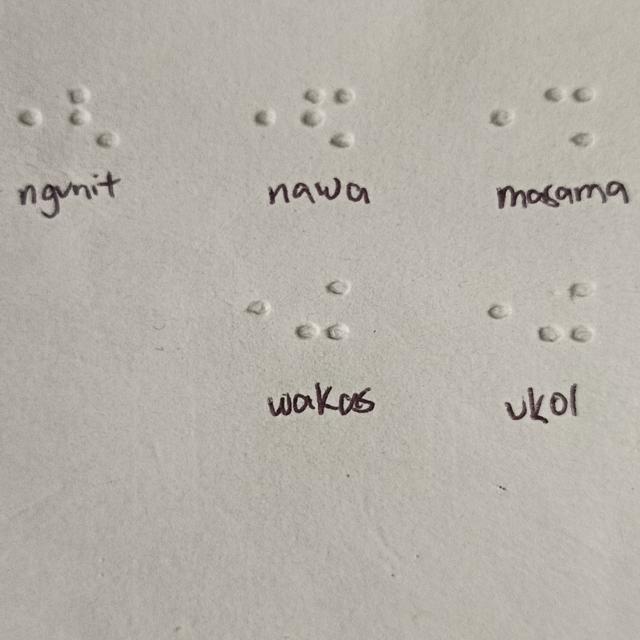 ⠐⠣ ⠐⠫ ⠐⠩
ngunit nawa masama
⠐⠬ ⠐⠬
wakas ukol